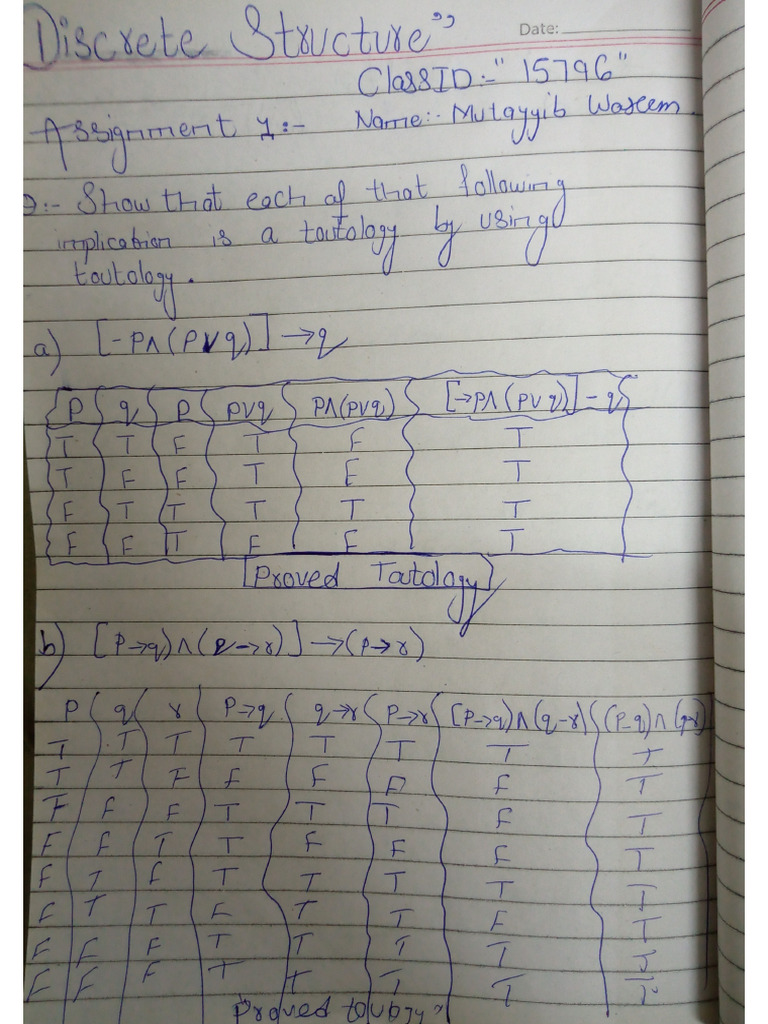 Discrete Structure"
Date:
ClassID:-"15796"
Assignment 1:- Name:- Mutayyib Waseem
:- Show that each of that following
implication is a toutology by using
toutology.
a) [-P∧(P∨q)]→q
P q P P∨q P∧(P∨q) [→P∧(P∨q)]-q
T T F T F T
T F F T F T
F T T T T T
F F T F F T
Proved Toutology
b) [P→q)∧(q→r)]→(P→r)
P q r P→q q→r P→r [P→q)∧(q-r) (P-q)∧
T T T T T T T T
T T F F F F F T
F F F T T T F T
F F T T F F F T
F T F T T T T T
F T T F T T F T
F F F T T T T T
F F F T T T T T
"Proved